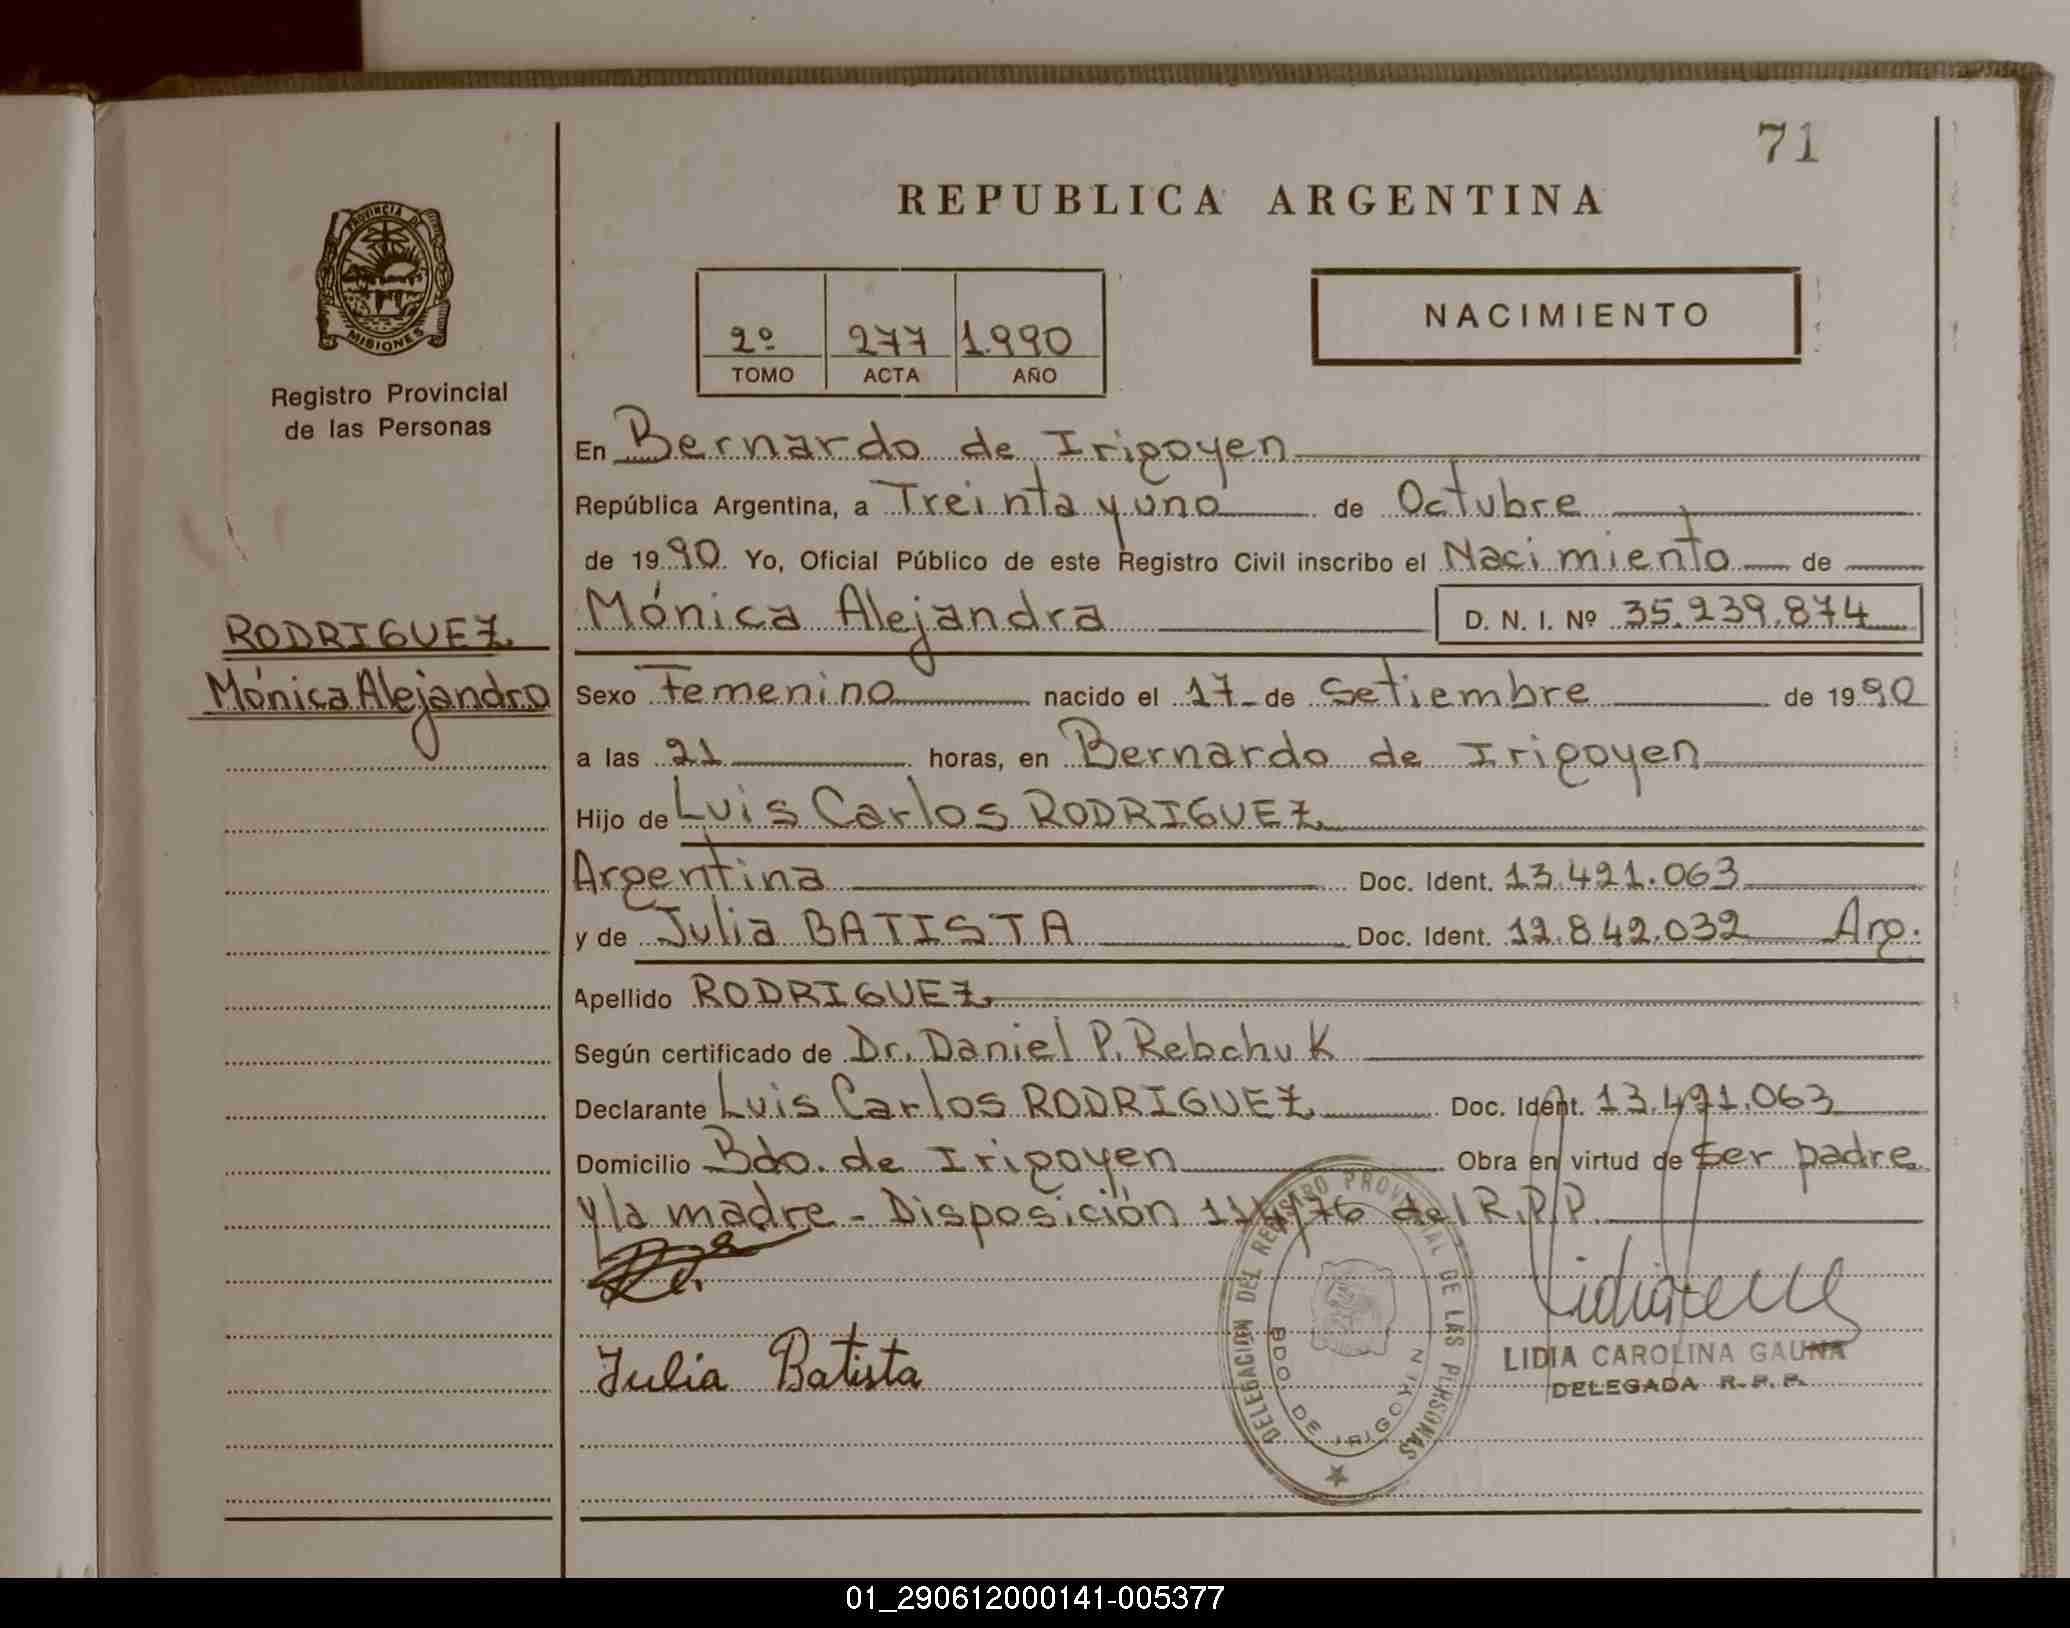 71
REPUBLICA ARGENTINA
PROVINCIA DE
MISIONES
Registro Provincial
de las Personas
2º 277 1.990
TOMO ACTA AÑO
NACIMIENTO
En Bernardo de Irigoyen
República Argentina, a Treinta y uno de Octubre
de 1990 Yo, Oficial Público de este Registro Civil inscribo el Nacimiento de
Mónica Alejandra D. N. I. Nº 35.239.874
RODRIGUEZ
Mónica Alejandra
Sexo Femenino nacido el 17 de Setiembre de 1990
a las 21 horas, en Bernardo de Irigoyen
Hijo de Luis Carlos RODRIGUEZ
Argentina Doc. Ident. 13.421.063
y de Julia BATISTA Doc. Ident. 12.842.032 Arg.
Apellido RODRIGUEZ
Según certificado de Dr. Daniel P. Rebchuk
Declarante Luis Carlos RODRIGUEZ Doc. Ident. 13.421.063
Domicilio Bdo. de Irigoyen Obra en virtud de ser padre
y la madre - Disposición /76 del R.P.P.
Julia Batista
DELEGACION DEL REGISTRO PROVINCIAL DE LAS PERSONAS
BDO DE IRIGOYEN
LIDIA CAROLINA GAUNA
DELEGADA R.P.P.
01_290612000141-005377